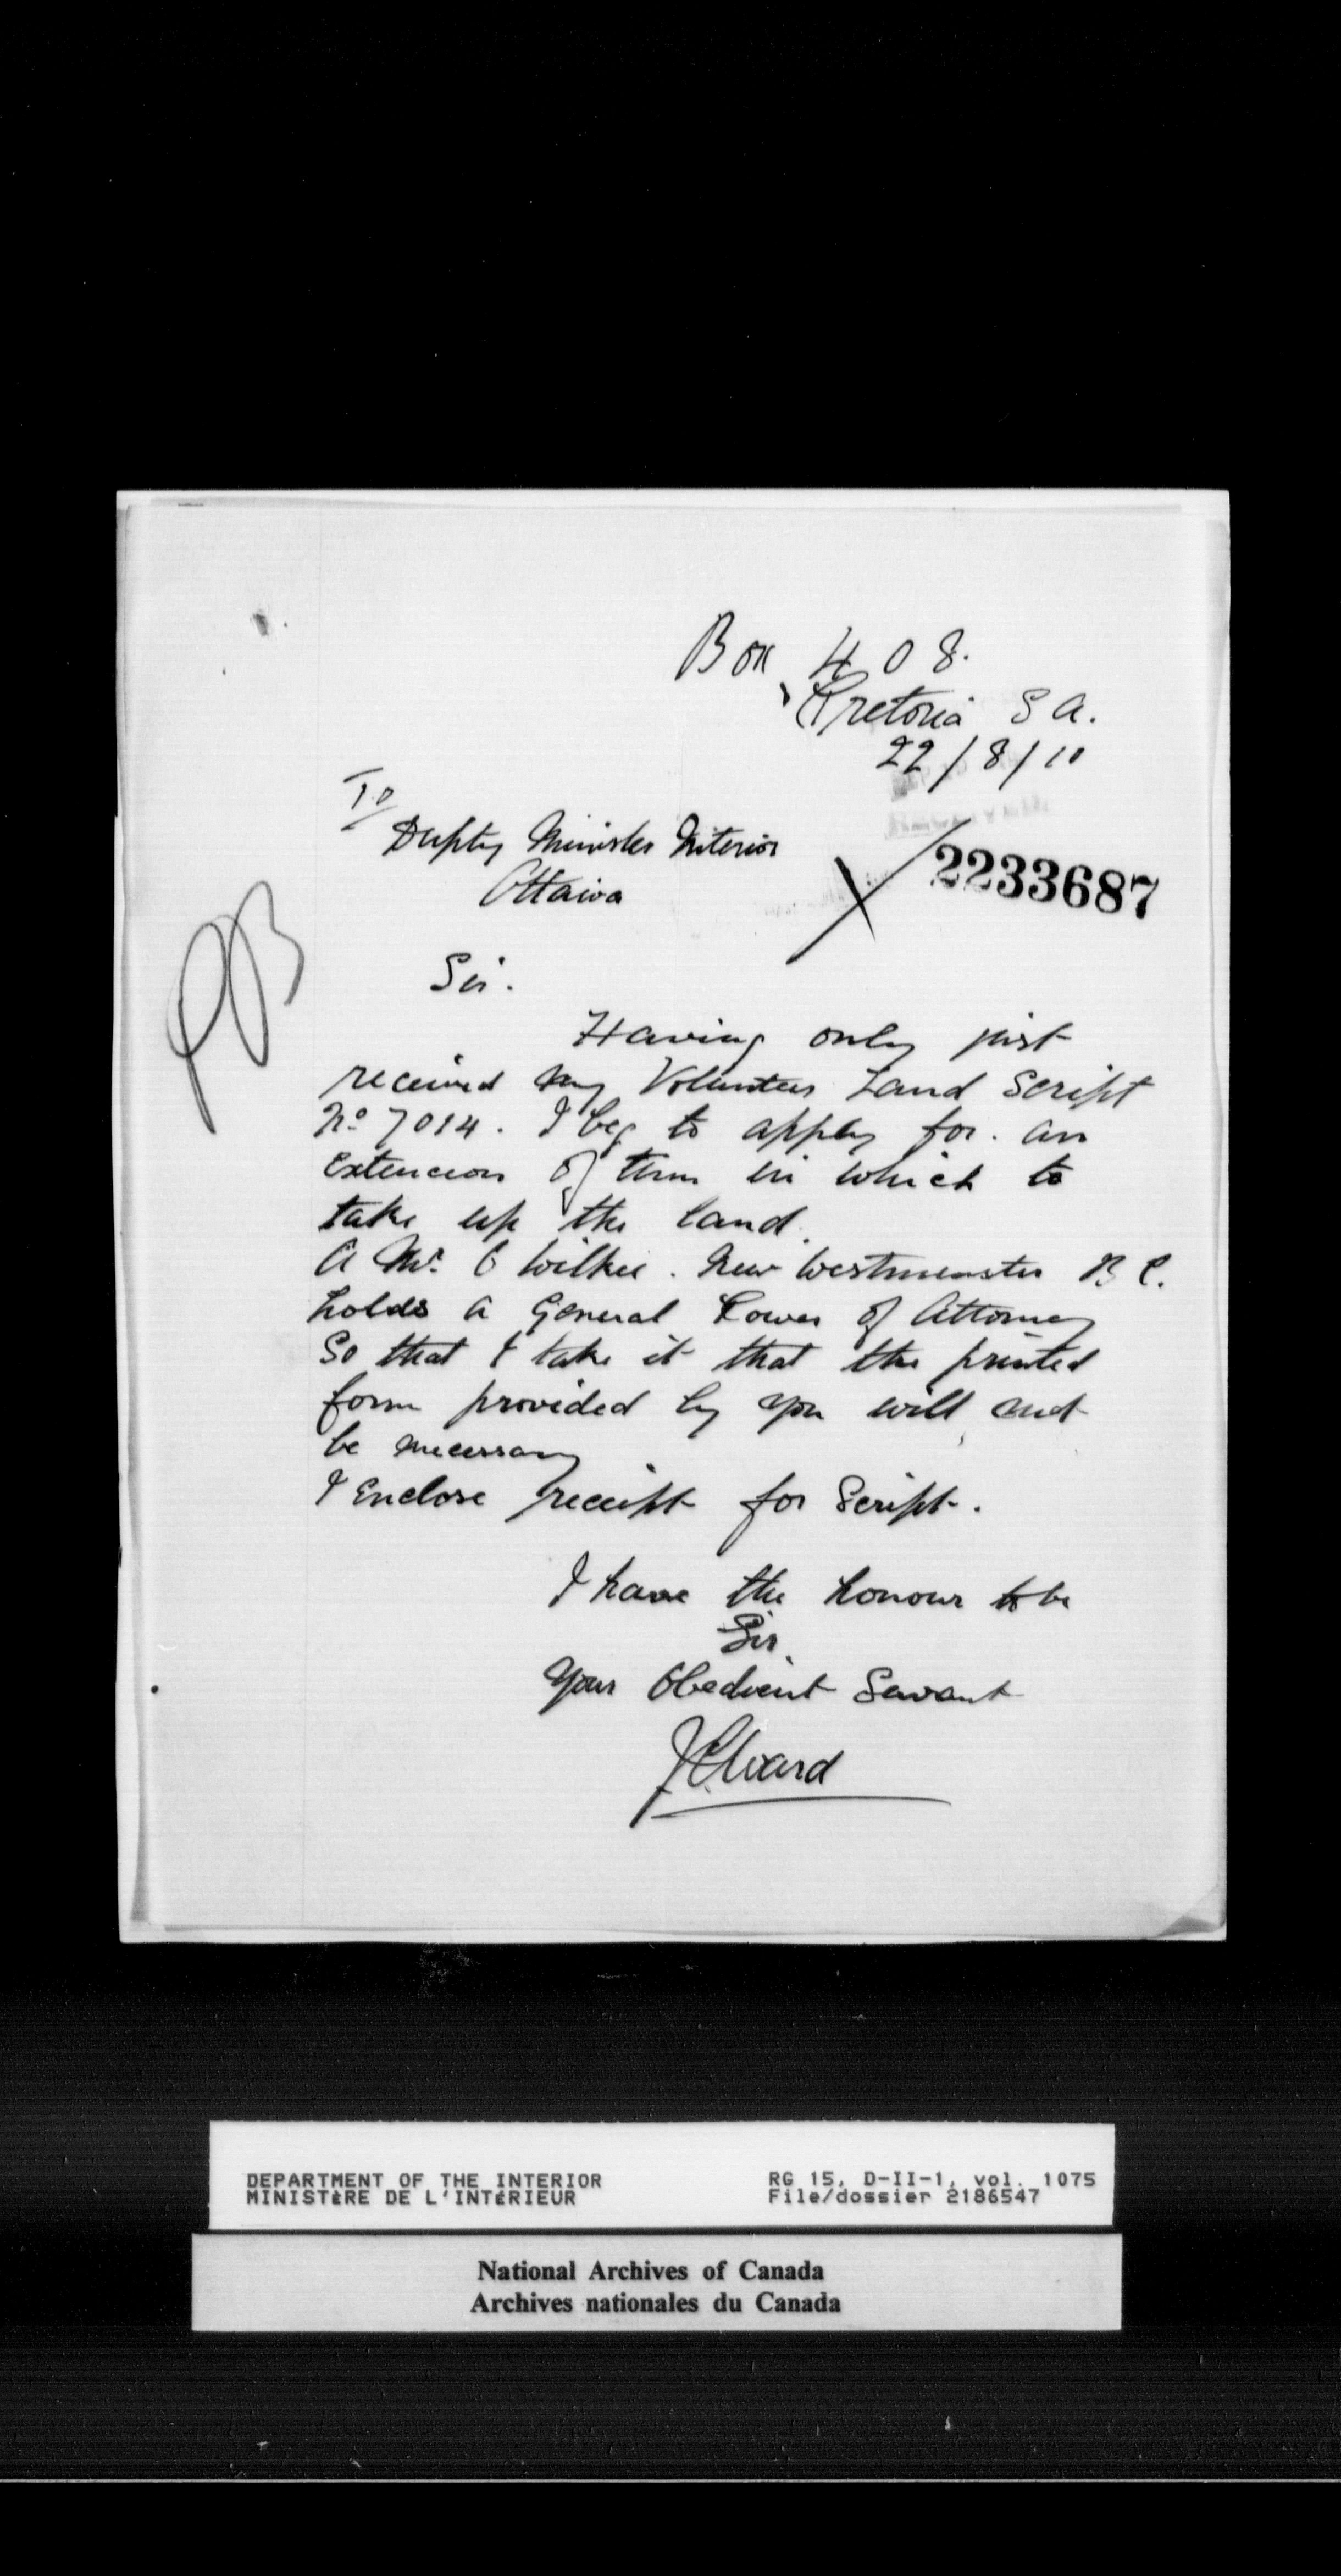 Box 408.
Pretoria S A.
22/8/10
To
Deputy Minister Interior
Ottawa
2233687
Sir.
Having only just
received my Volunteer Land Script
No 7014. I beg to apply for. an
extencion of time in which to
take up the land.
A Mr. C Wilkie. New Westminster B C.
holds a General Power of Attorney
So that I take it that the printed
form provided by you will not
be necessary
I Enclose receipt for Script.
I have the honour to be
Sir.
Your Obedient Servant
J C Ward
DEPARTMENT OF THE INTERIOR
MINISTÈRE DE L'INTÉRIEUR
RG 15, D-II-1, vol. 1075
File/dossier 2186547
National Archives of Canada
Archives nationales du Canada